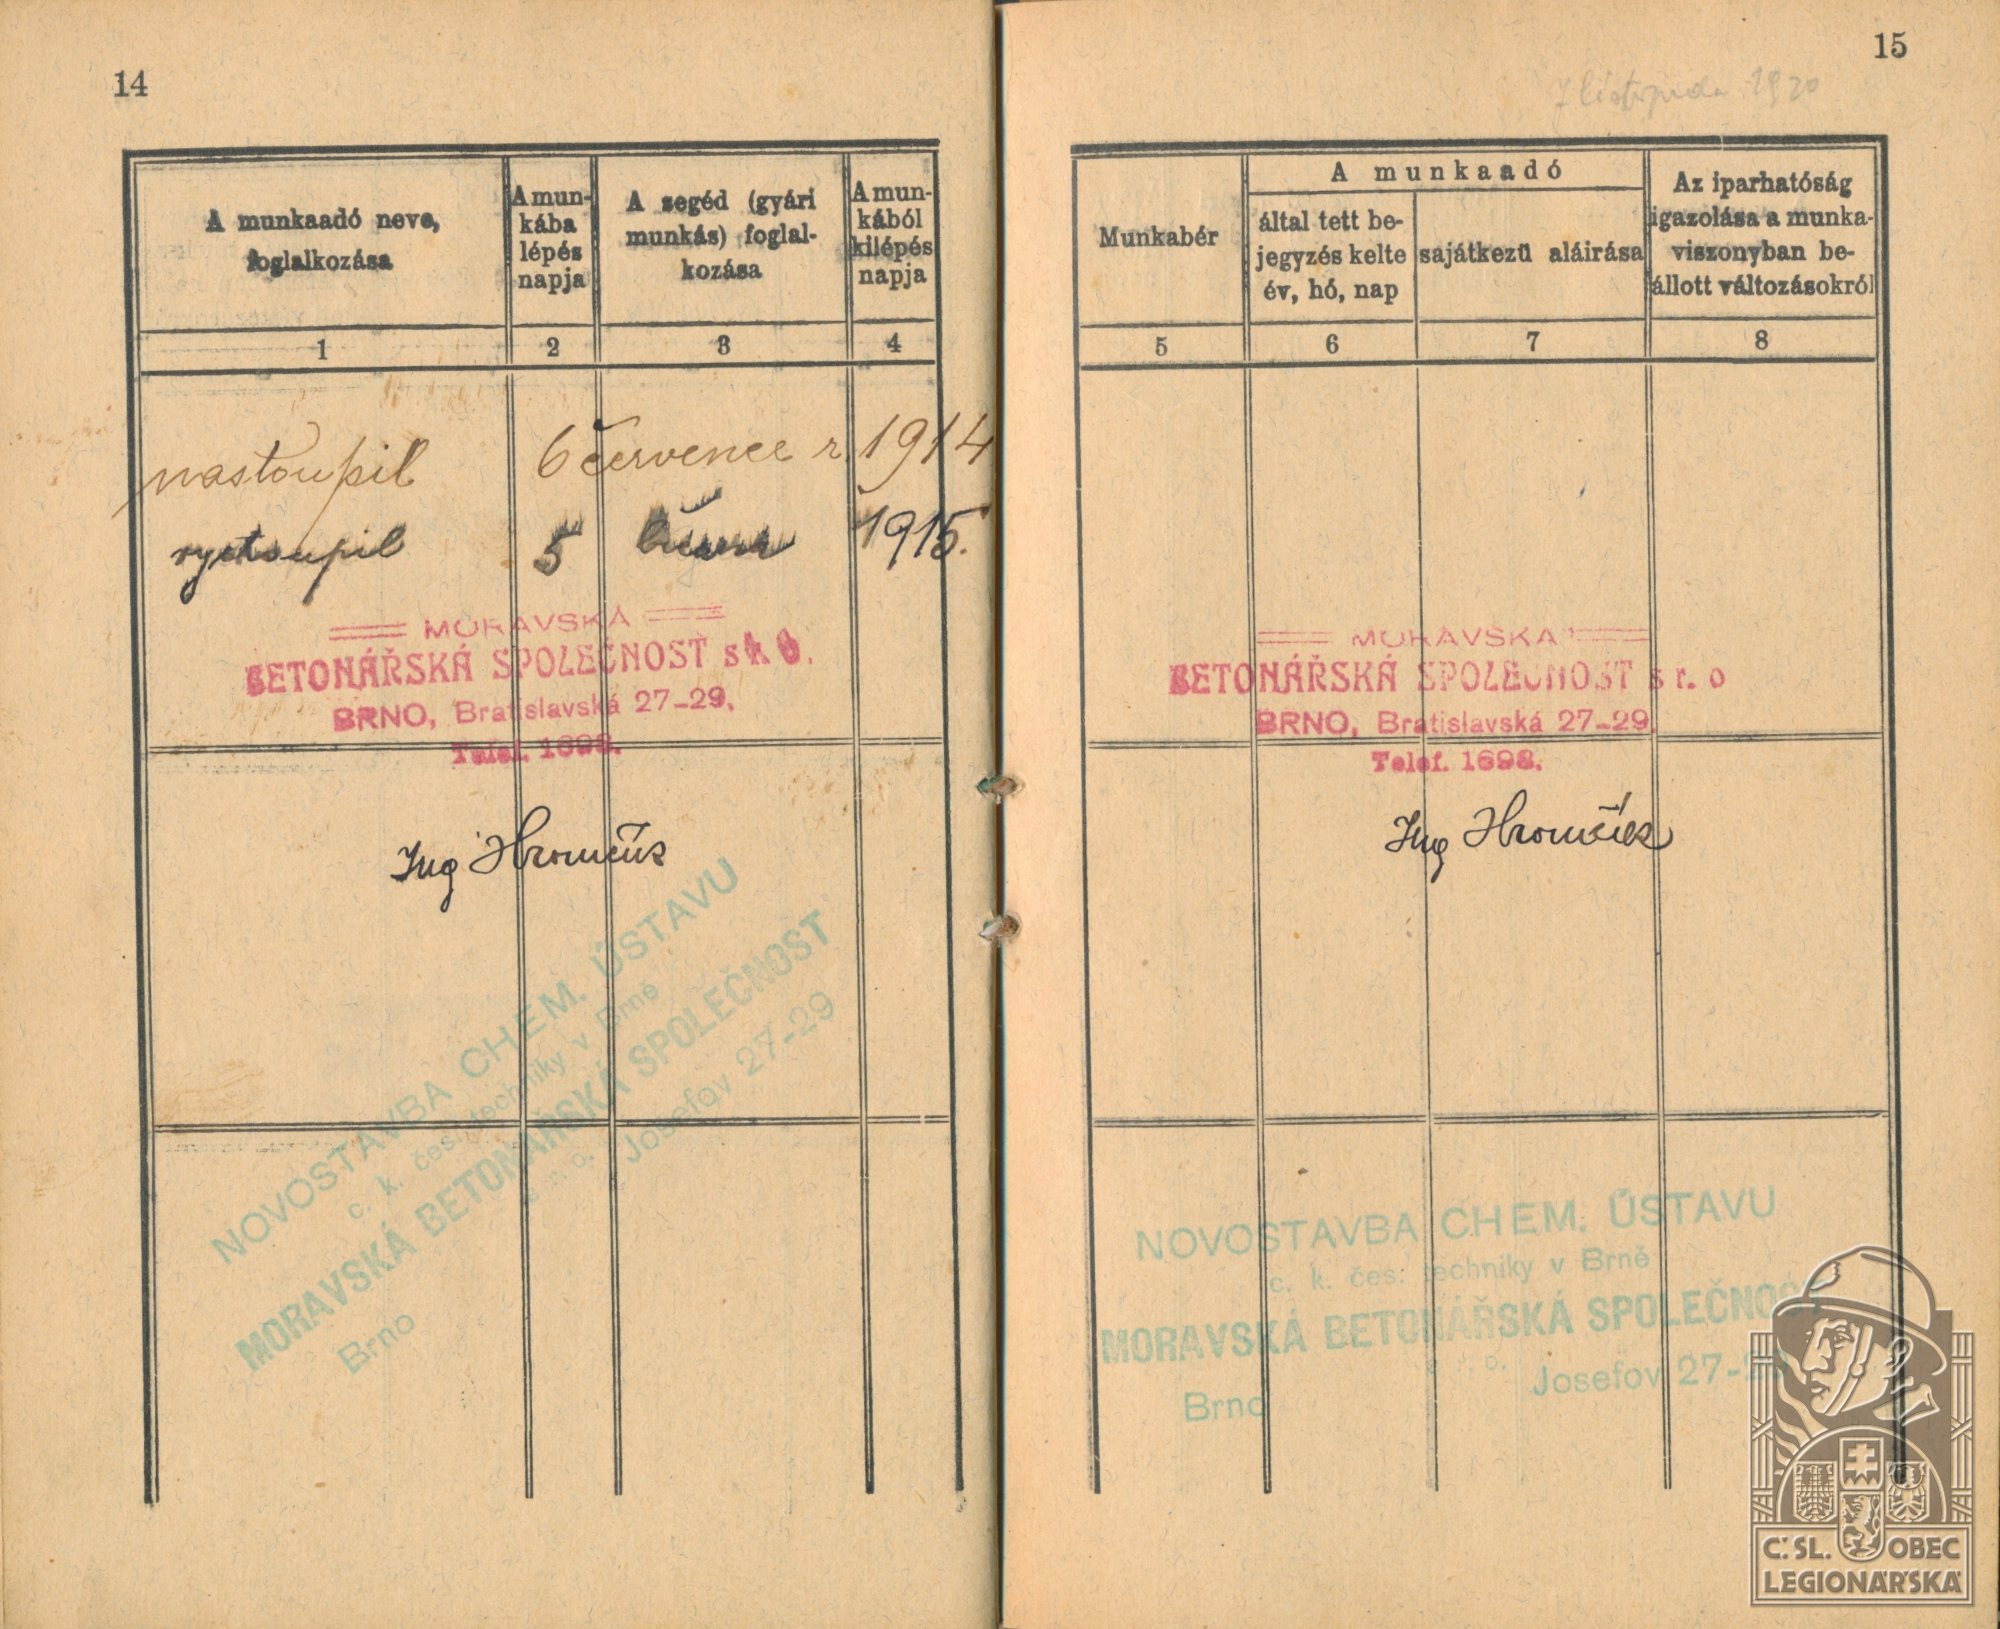 14
A munkaadó neve,
foglalkozása
A mun-
kába
lépés
napja
A segéd (gyári
munkás) foglal-
kozása
A mun-
kából
kilépés
napja
1
2
3
4
nastoupil 6 července r. 1914
vystoupil 5 1915.
MORAVSKÁ
BETONÁŘSKÁ SPOLEČNOST s r. o.
BRNO, Bratislavská 27-29.
Telef. 1698.
Ing Hromčík
NOVOSTAVBA CHEM. ÚSTAVU
c. k. čes. techniky v Brně
MORAVSKÁ BETONÁŘSKÁ SPOLEČNOST
Brno Josefov 27-29
15
7 listopadu 1920
Munkabér
A munkaadó
által tett be-
jegyzés kelte
év, hó, nap
sajátkezü aláirása
Az iparhatóság
igazolása a munka-
viszonyban be-
állott változásokról
5
6
7
8
MORAVSKÁ
BETONÁŘSKÁ SPOLEČNOST s r. o
BRNO, Bratislavská 27-29.
Telef. 1698.
Ing Hromčík
NOVOSTAVBA CHEM. ÚSTAVU
c. k. čes. techniky v Brně
MORAVSKÁ BETONÁŘSKÁ SPOLEČNOS
Brno Josefov 27-29
Č.SL. OBEC
LEGIONÁŘSKÁ